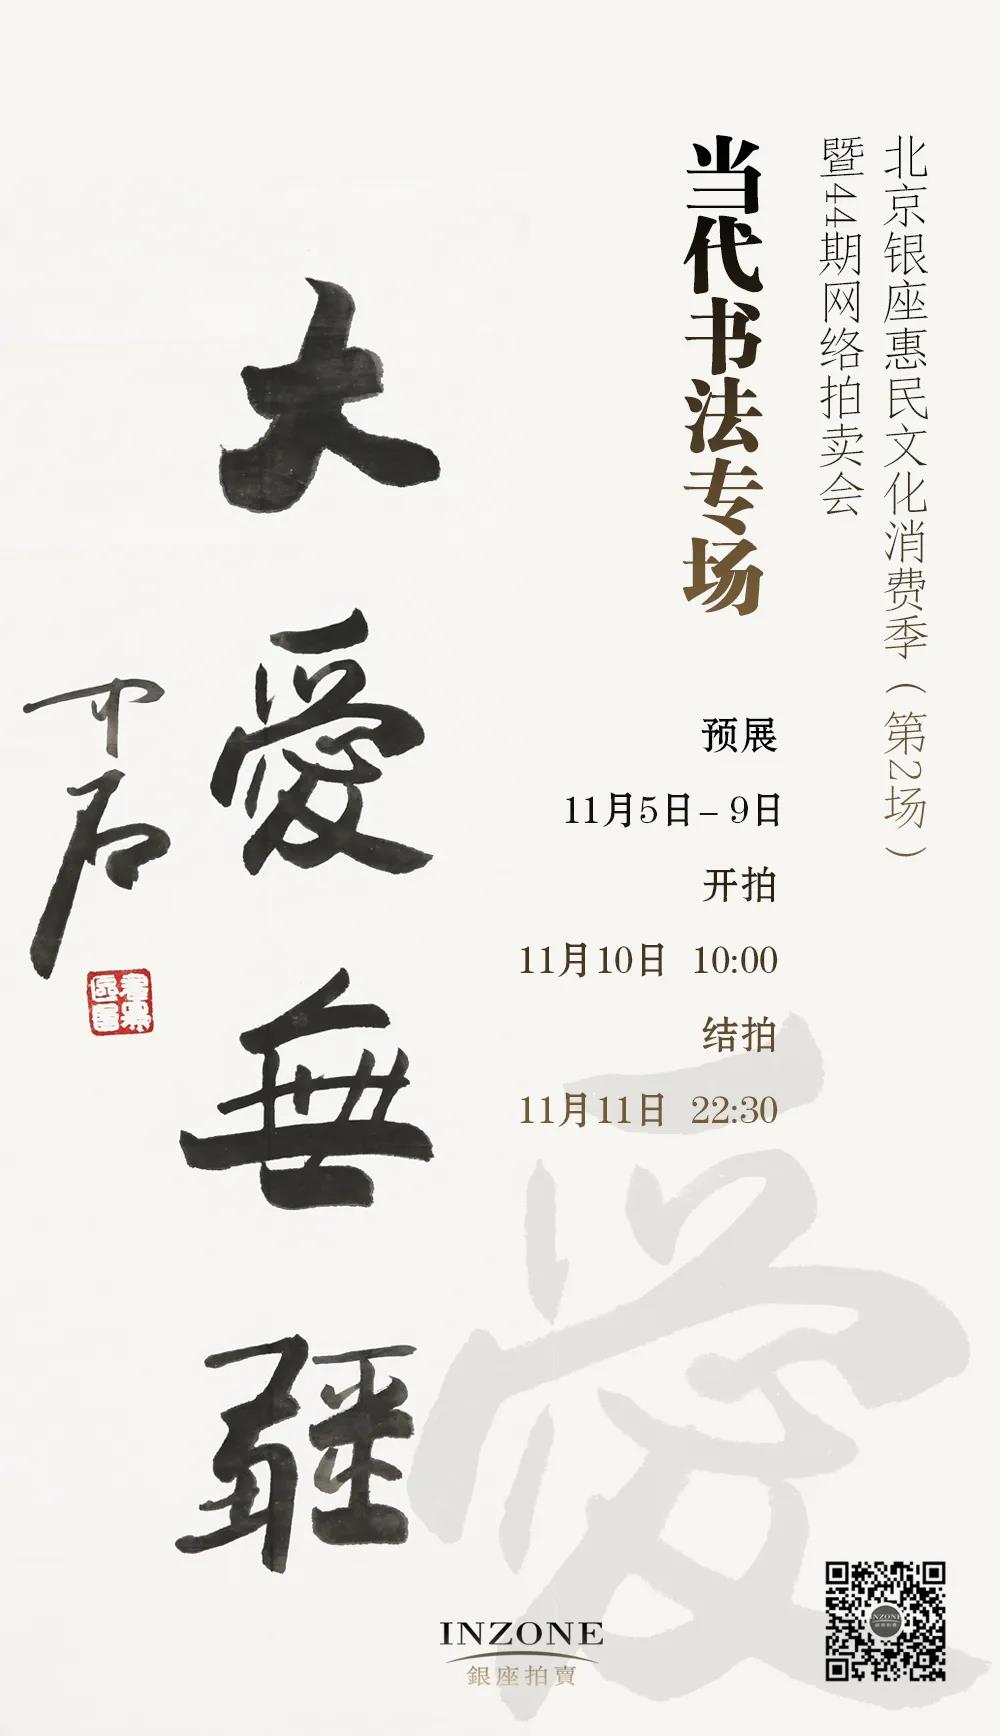 北京银座惠民文化消费季（第2场）
暨44期网络拍卖会
当代书法专场
预展
11月5日－9日
开拍
11月10日 10:00
结拍
11月11日 22:30
大愛無疆
中石
INZONE
銀座拍賣